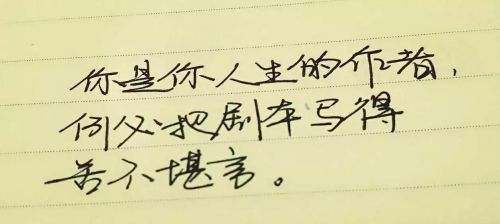 你是你人生的作者,
何必把剧本写得
苦不堪言。